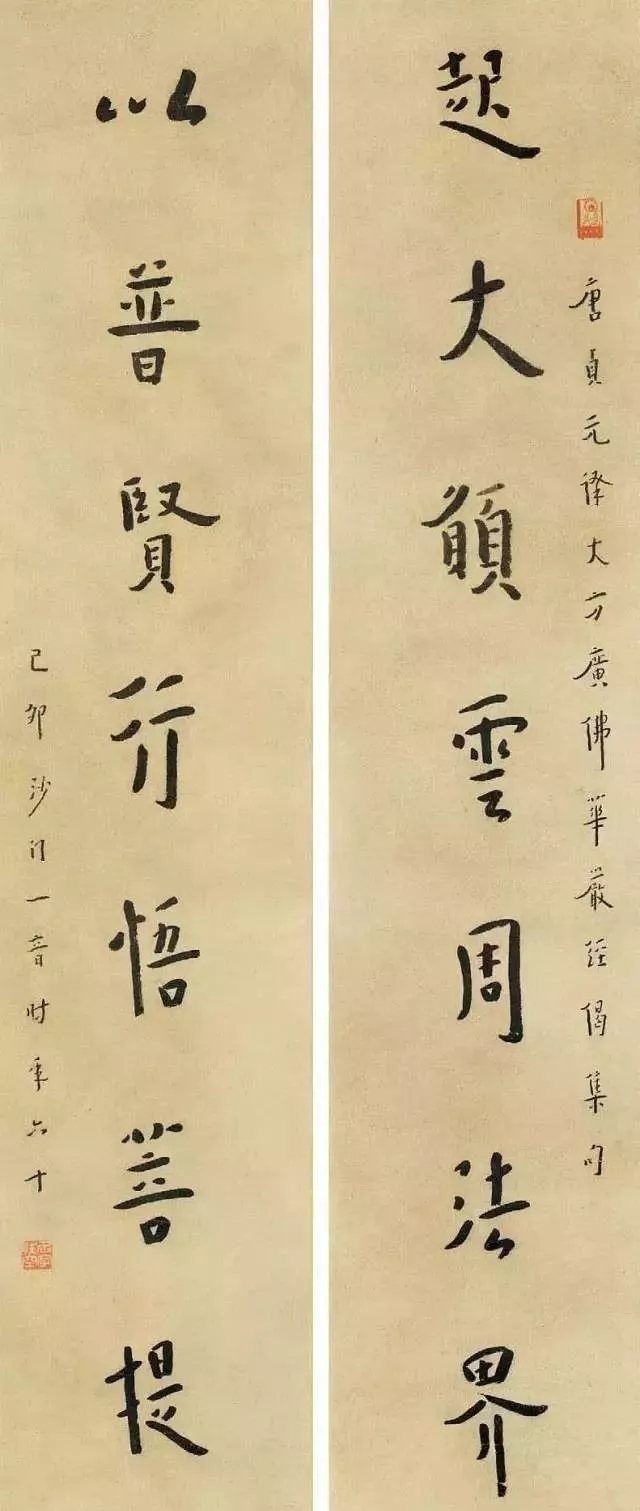 唐貞元譯大方廣佛華嚴經偈集句
起大願雲周法界
以普賢行悟菩提
己卯沙門一音時年六十